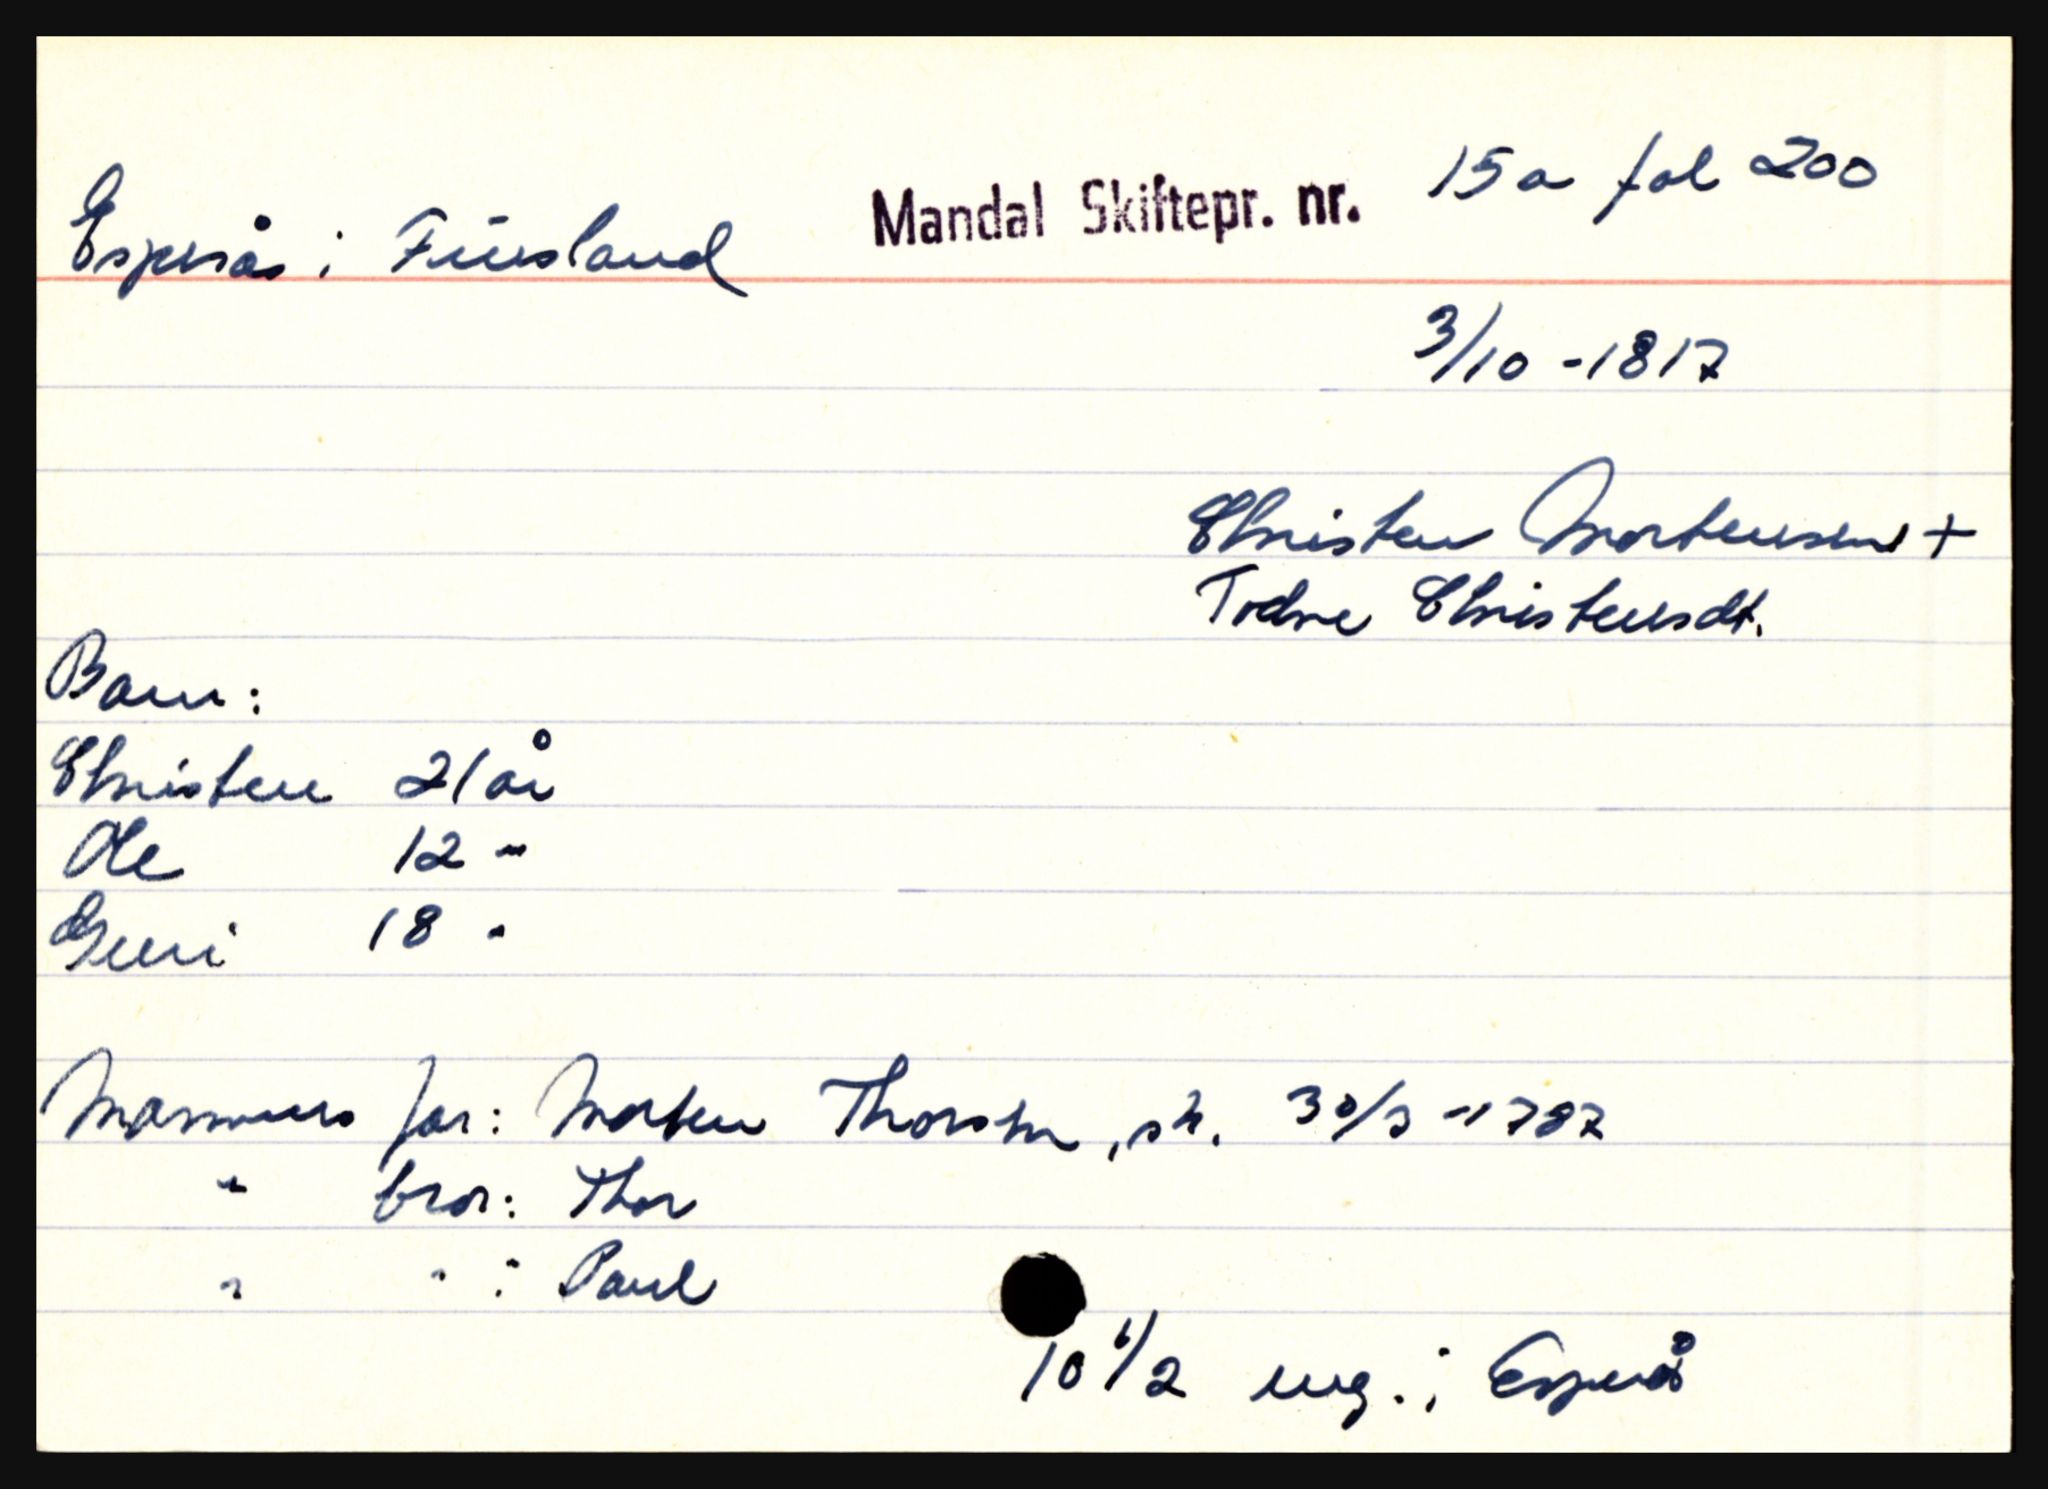 Esperås i Finsland Mandal Skiftepr. nr. 15a fol 200
3/10 - 1817
Christen Mortensen +
Todne Christensdt.
Barn:
Christen 21 år
Ole 12 "
Guri 18 "
Mannens far: Morten Thorsen, sk. 30/3 - 1787
" bror: Thor
" " : Paul
10 1/2 eng. i Esperås